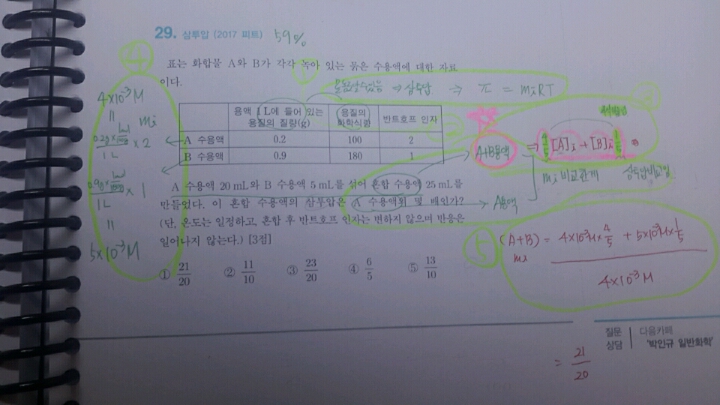 29. 삼투압 (2017 피트) 59%
표는 화합물 A와 B가 각각 녹아 있는 묽은 수용액에 대한 자료
이다.
⇒ 삼투압 ⇒ π = miRT
용액 1 L에 들어 있는 용질의 질량(g)
용질의 화학식량
반트호프 인자
A 수용액 0.2 100 2
B 수용액 0.9 180 1
A 수용액 20 mL와 B 수용액 5 mL를 섞어 혼합 수용액 25 mL를
만들었다. 이 혼합 수용액의 삼투압은 A 수용액의 몇 배인가?
(단, 온도는 일정하고, 혼합 후 반트호프 인자는 변하지 않으며 반응은
일어나지 않는다.) [3점]
① 21/20 ② 11/10 ③ 23/20 ④ 6/5 ⑤ 13/10
④
4×10⁻³M
mi
×2
1L
×1
1L
5×10⁻³M
A+B용액
A용액
mi 비교관계
⑤
(A+B) mi = 4×10⁻³M×4/5 + 5×10⁻³M×1/5
4×10⁻³M
= 21/20
질문
상담
다음카페
'박인규 일반화학'